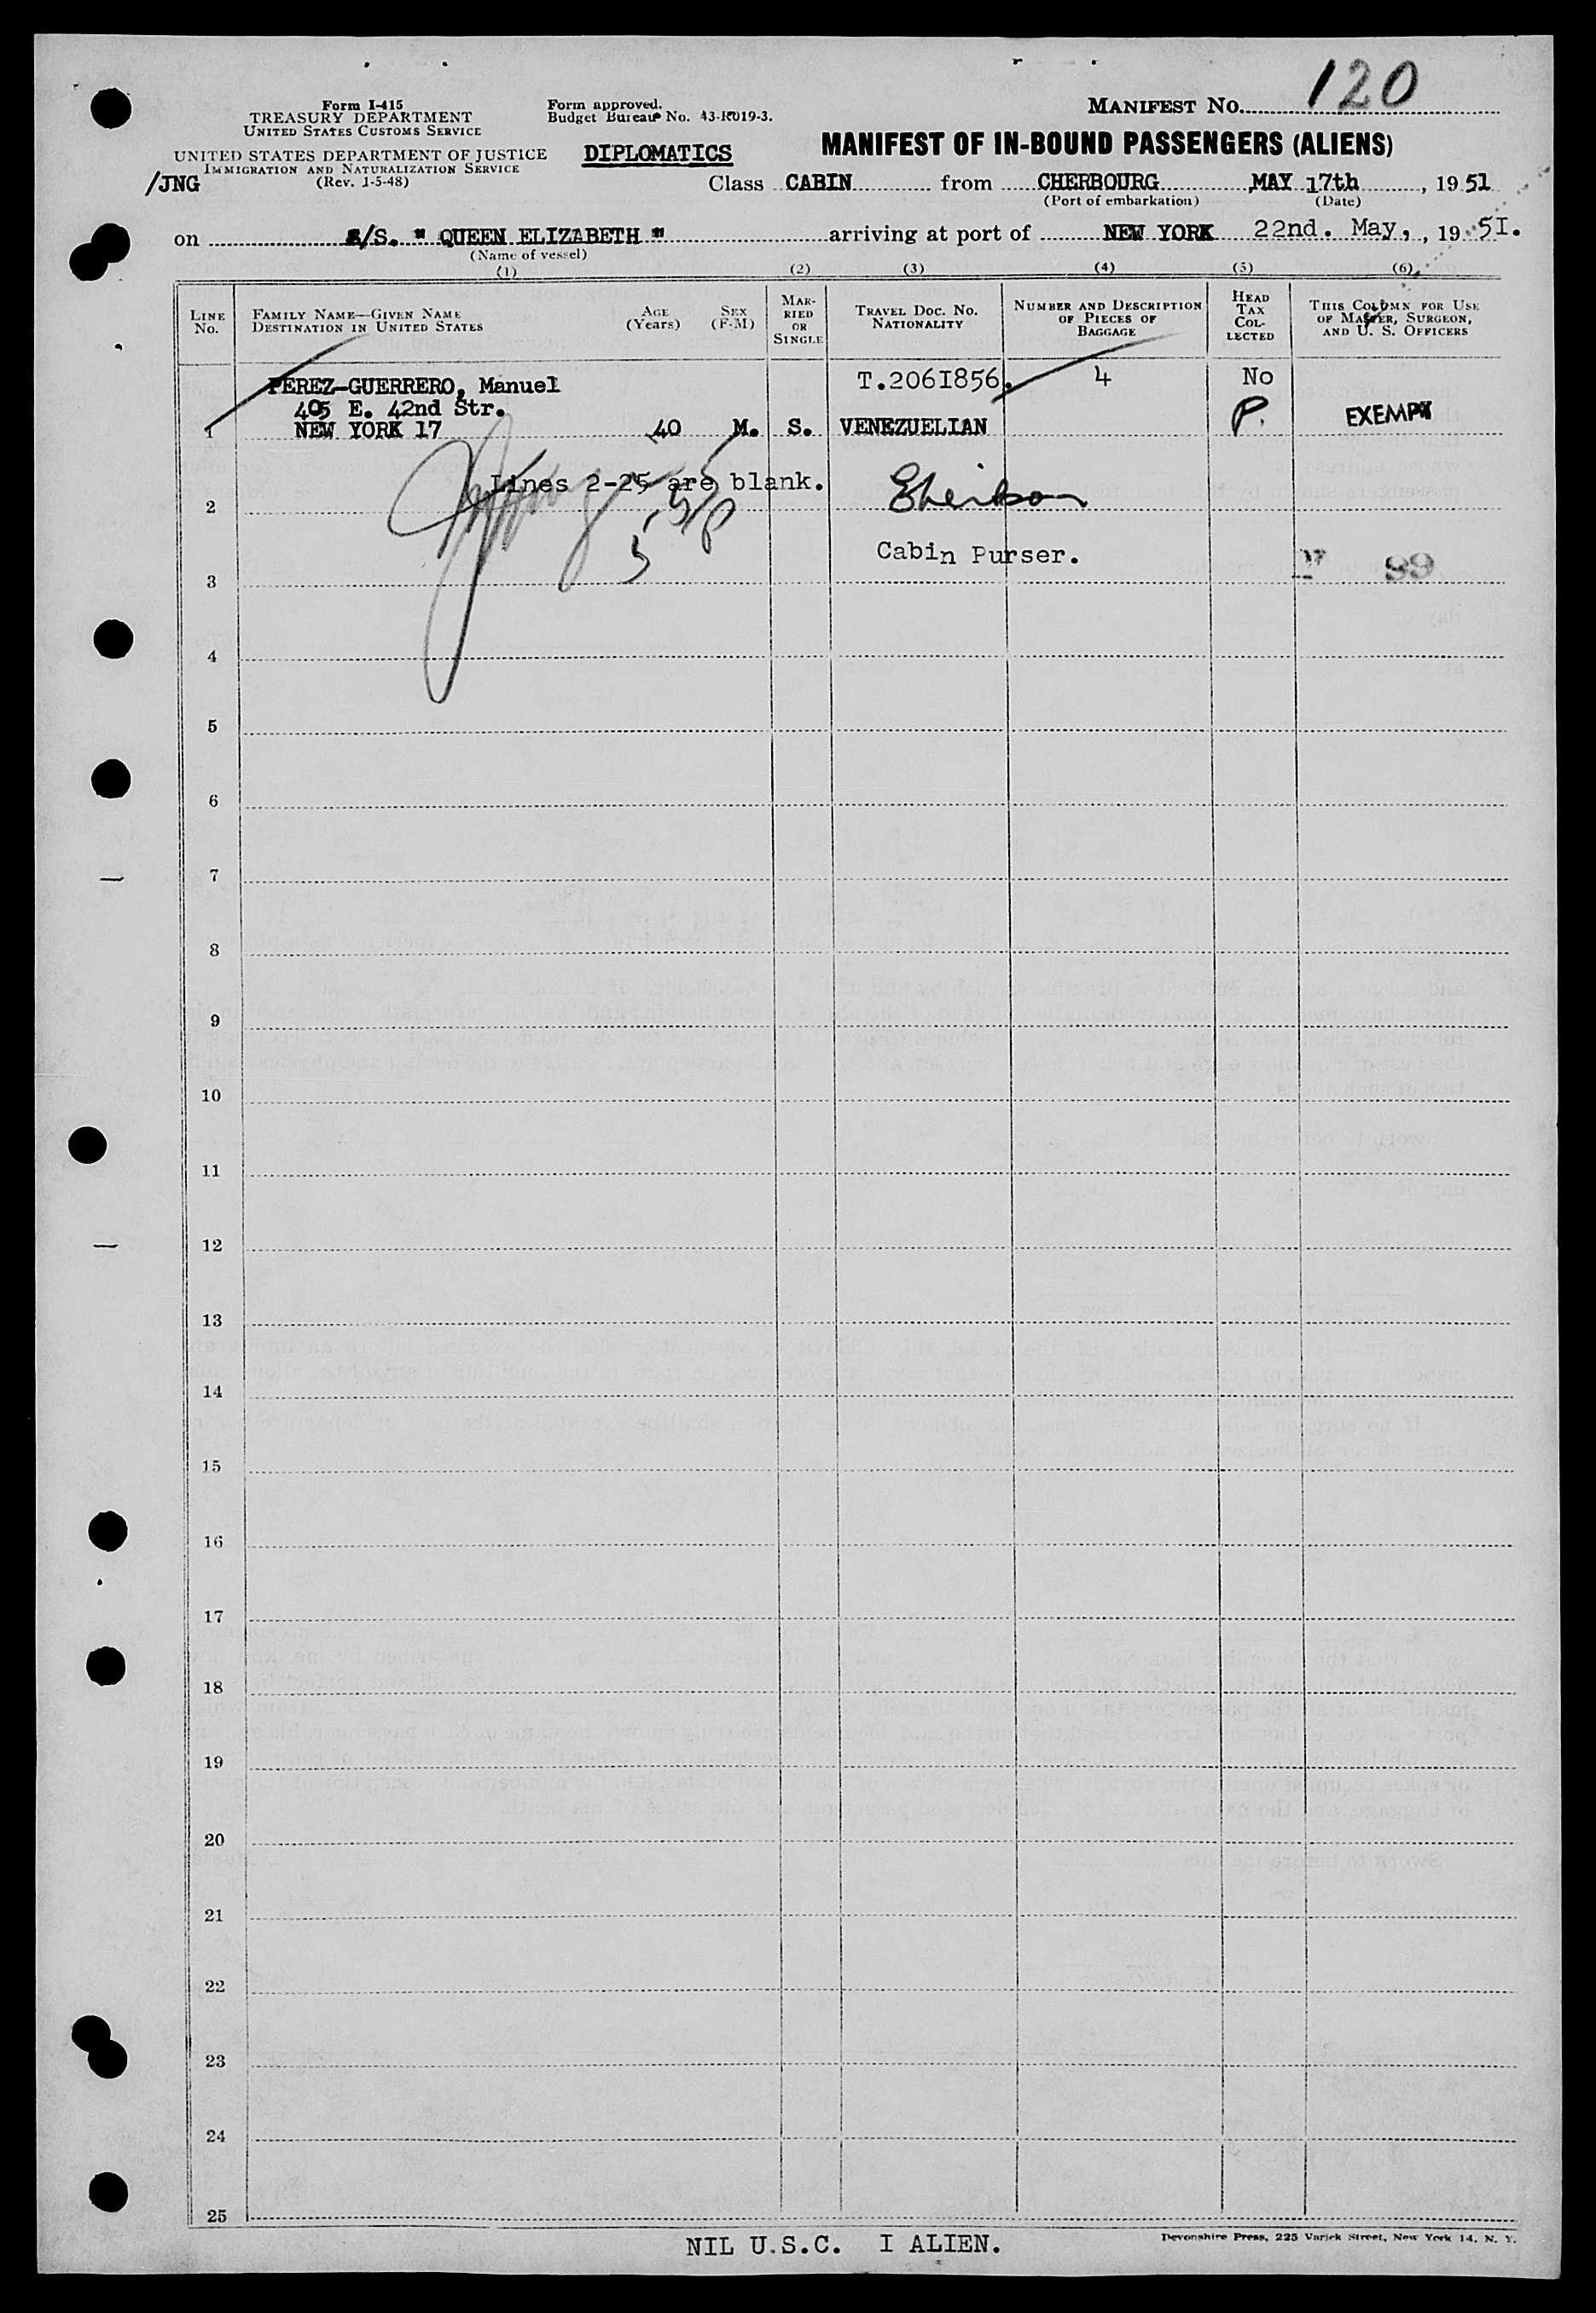 Form I-415
TREASURY DEPARTMENT
UNITED STATES CUSTOMS SERVICE
UNITED STATES DEPARTMENT OF JUSTICE
IMMIGRATION AND NATURALIZATION SERVICE
(Rev. 1-5-48)
/JNG
Form approved.
Budget Bureau No. 43-R019-3.
DIPLOMATICS
MANIFEST NO. 120
MANIFEST OF IN-BOUND PASSENGERS (ALIENS)
Class CABIN from CHERBOURG, MAY 17th, 1951
(Port of embarkation) (Date)
on S/S. " QUEEN ELIZABETH " arriving at port of NEW YORK 22nd. May, , 19 5I.
(Name of vessel)
(1) (2) (3) (4) (5) (6)
LINE NO.
FAMILY NAME—GIVEN NAME
DESTINATION IN UNITED STATES
AGE (Years)
SEX (F-M)
MARRIED OR SINGLE
TRAVEL DOC. NO.
NATIONALITY
NUMBER AND DESCRIPTION OF PIECES OF BAGGAGE
HEAD TAX COLLECTED
THIS COLUMN FOR USE OF MASTER, SURGEON, AND U. S. OFFICERS
PEREZ-GUERRERO, Manuel T.206I856. 4 No
405 E. 42nd Str.
1 NEW YORK 17 40 M. S. VENEZUELIAN P. EXEMPT
Lines 2-25 are blank.
2
Cabin Purser.
3 99
4
5
6
7
8
9
10
11
12
13
14
15
16
17
18
19
20
21
22
23
24
25
NIL U.S.C. I ALIEN.
Devonshire Press, 225 Varick Street, New York 14, N. Y.